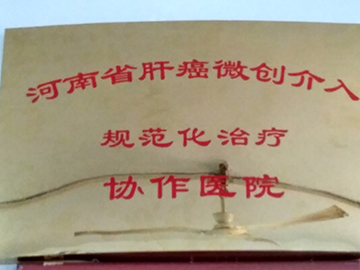 河南省肝癌微创介入
规范化治疗
协作医院